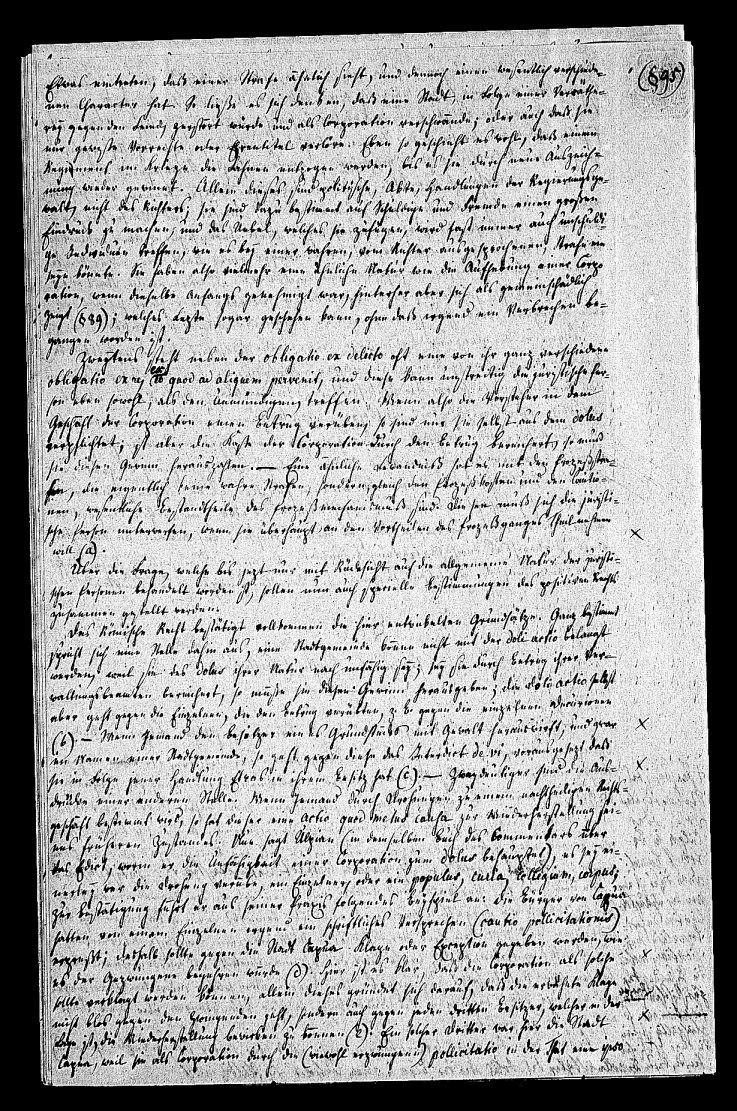 (§95)
Etwas eintreten, daß einer Strafe ähnlich sieht, und dennoch einen wesentlich verschiede-
nen Character hat. So ließe es sich denken, daß eine Stadt in Folge einer Verräthe-
rey gegen den Feind zerstört würde und als Corporation verschwände; oder auch daß sie
nur gewisse Vorrechte oder Ehrentitel verlöre. Eben so geschieht es wohl, daß einem
Regiment im Kriege die Fahnen entzogen werden, bis es sie durch neue Auszeich-
nung wieder gewinnt. Allein dieses sind politische Akte, Handlungen der Regierungsge-
walt, nicht des Richters; sie sind dazu bestimmt auf Schuldige und Fremde einen großen
Eindruck zu machen, und das Uebel, welches sie zufügen, wird fast immer auch unschuldi-
ge Individuen treffen, wie es bey einer wahren, vom Richter ausgesprochenen Strafe nie
seyn könnte. Sie haben also vielmehr eine ähnliche Natur wie die Aufhebung einer Corpo-
ration, wenn dieselbe Anfangs genehmigt war, hinterher aber sich als gemeinschädlich
zeigt (§89); welches Letzte sogar geschehen kann, ohne daß irgend ein Verbrechen be-
gangen worden ist.
Zweytens steht neben der obligatio ex delicto oft eine von ihr ganz verschiedene
obligatio ex eo quod ad aliquem pervenit, und diese kann unstreitig die juristische Per-
son eben sowohl, als den Unmündigen, treffen. Wenn also die Vorsteher in dem
Geschäft der Corporation einen Betrug verüben, so sind nur sie selbst aus dem dolus
verpflichtet; ist aber die Kasse der Corporation durch den Betrug bereichert, so muß
sie diesen Gewinn herauszahlen. — Eine ähnliche Bewandniß hat es mit den Prozeßstra-
fen, die eigentlich keine wahre Strafen, sondern gleich den Prozeßkosten und den Cautio-
nen, wesentliche Bestandtheile des Prozeßmechanismus sind. Diesen muß sich die juristi-
sche Person unterwerfen, wenn sie überhaupt an den Vortheilen des Prozeßganges Theil nehmen
will (a).
Über die Frage, welche bis jezt nur mit Rücksicht auf die allgemeine Natur der juristi-
schen Personen behandelt worden ist, sollen nun auch specielle Bestimmungen des positiven Rechts
zusammen gestellt werden.
Das Römische Recht bestätigt vollkommen die hier entwickelten Grundsätze. Ganz bestimmt
spricht sich eine Stelle dahin aus, eine Stadtgemeinde könne nicht mit der doli actio belangt
werden, weil sie des dolus ihrer Natur nach unfähig sey; sey sie durch Betrug ihrer Ver-
waltungsbeamten bereichert, so müße sie diesen Gewinn herausgeben; die doli actio selbst
aber geht gegen die Einzelnen, die den Betrug verübten, z. B. gegen die einzelnen Decurionen
(b). — Wenn Jemand den Besitzer eines Grundstücks mit Gewalt herauswirft, und zwar
im Namen einer Stadtgemeinde, so geht gegen diese das Interdict de vi, vorausgesezt daß
sie in Folge jener Handlung Etwas in ihrem Besitz hat (c). — Zweydeutiger sind die Aus-
drücke einer anderen Stelle. Wenn Jemand durch Drohungen zu einem nachtheiligen Rechts-
geschäft bestimmt wird, so hat dieser eine actio quod metus causa zur Wiederherstellung sei-
nes früheren Zustandes. Nun sagt Ulpian (in demselben Buch des Commentars über
das Edict, worin er die Unfähigkeit einer Corporation zum dolus behauptet), es sey ei-
nerley wer die Drohung verübe, ein Einzelner, oder ein populus, curia, collegium, corpus;
zur Bestätigung führt er aus seiner Praxis folgendes Beyspiel an: die Bürger von Capua
hatten von einem Einzelnen irgend ein schriftliches Versprechen (cautio pollicitationis)
erpreßt; deshalb sollte gegen die Stadt Capua Klage oder Exception gegeben werden, wie
es der Gezwungene begehren würde (d). Hier ist es klar, daß die Corporation als solche
sollte verklagt werden können, allein dieses gründet sich darauf, daß die erwähnte Klage
nicht blos gegen den Zwingenden geht, sondern auch gegen jeden dritten Besitzer, welcher in der
Lage ist, die Wiederherstellung bewirken zu können (e). Ein solcher Dritter war hier die Stadt
Capua, weil sie als Corporation durch die (wiewohl erzwungene) pollicitatio in der That eine ipso